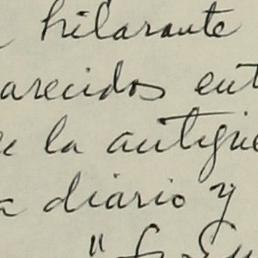 hilarante
arecidos ent
la antigüe
diario y
"